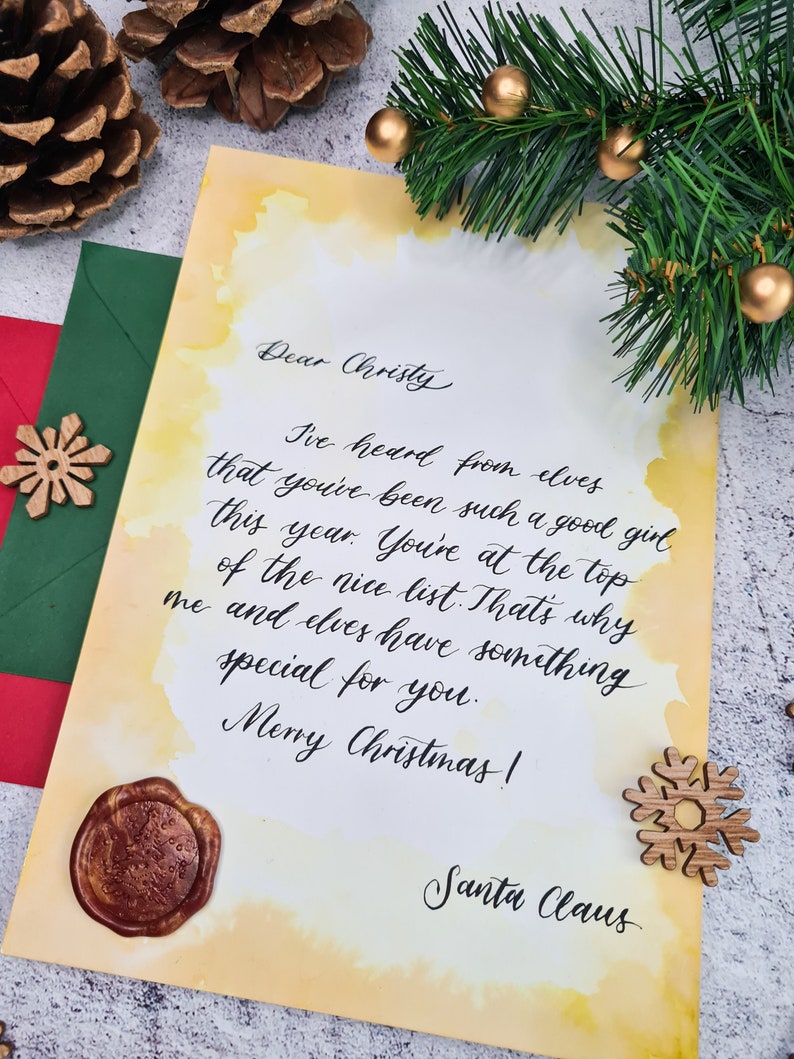 Dear Christy
I've heard from elves
that you've been such a good girl
this year. You're at the top
of the nice list. That's why
me and elves have something
special for you.
Merry Christmas!
Santa Claus